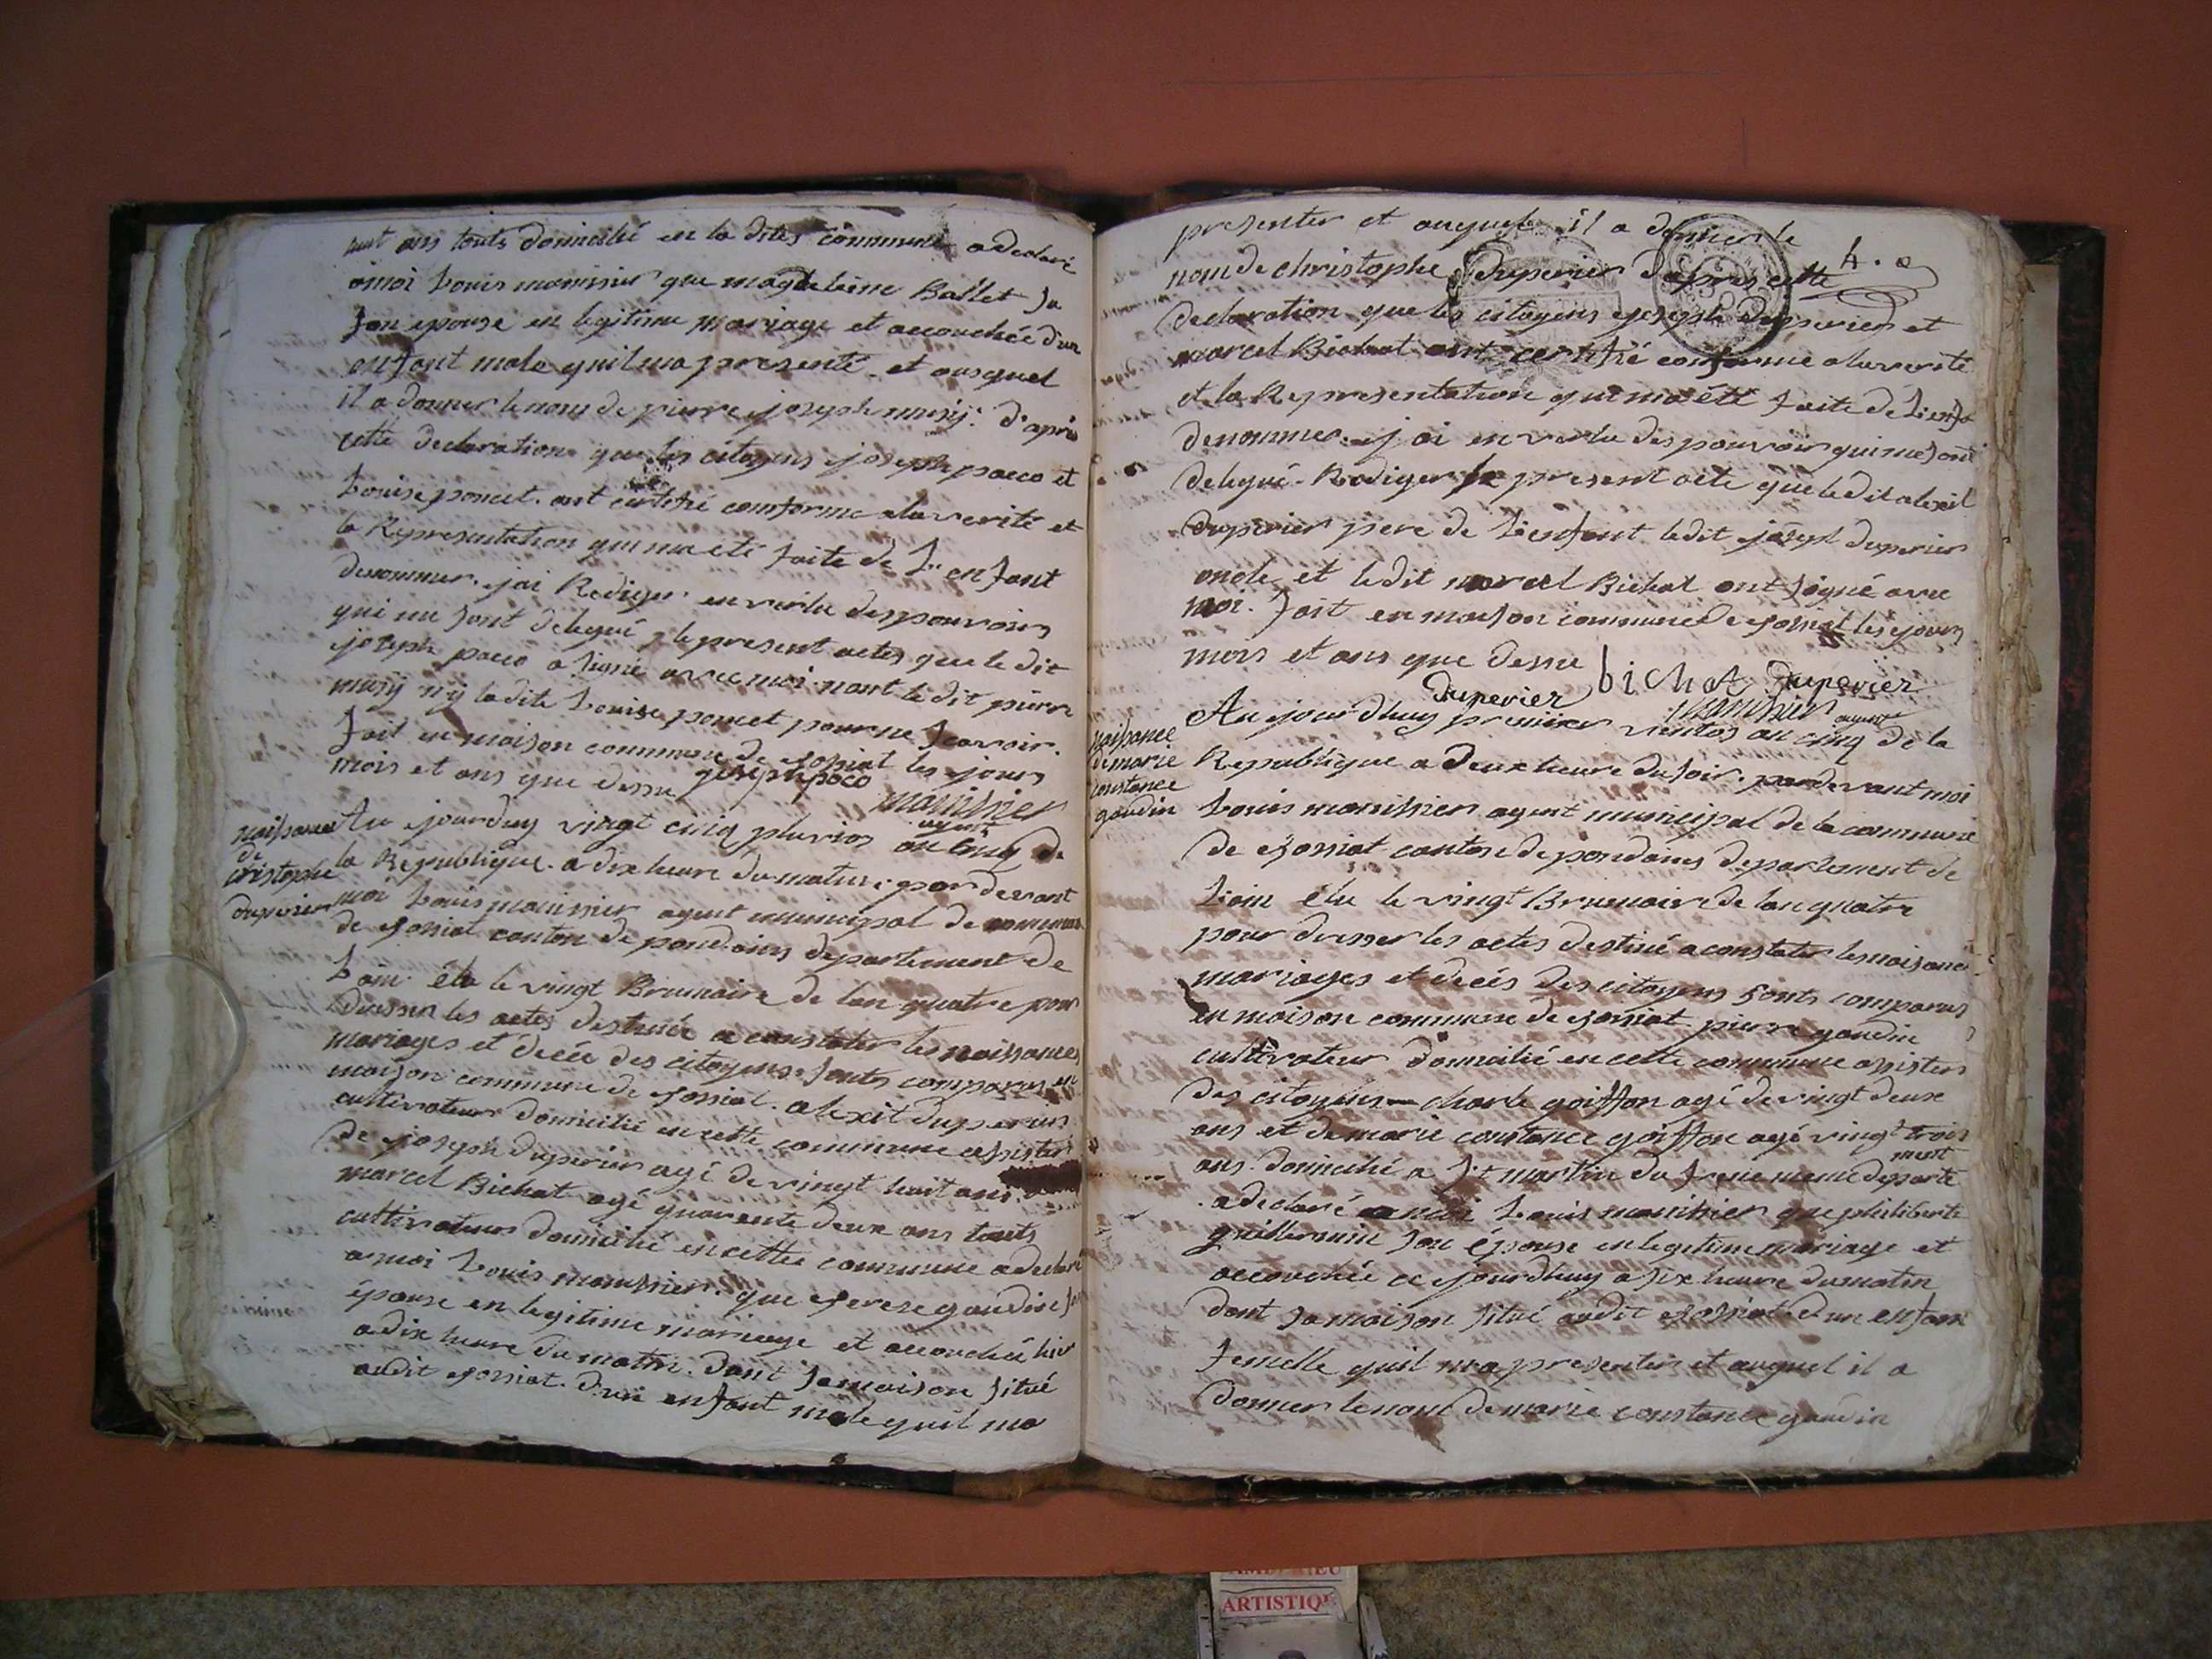 ans touts domicilié en la dites commune a declaré
a moi Louis manissier que magdeleine Ballet sa
son epouse en legitime mariage et accouchée d'un
enfant male quil ma presenté et auquel
il a donner le nom de pierre joseph musÿ. d'après
cette declaration que les citoyens joseph pacco et
Louise poncet. ont certifié comforme a la verité et
la Representation qui ma eté faite de L'enfant
denommer. jai Rediger en vertu des pouvoirs
qui me sont delegué, le present actes que le dit
joseph pacco a signé avec moi nont le dit pierre
musÿ n'y la dite Louise poncet pour ne scavoir.
fait en maison commune de josniat les jours
mois et ans que dessu joseph poco
manissier
agent
naissance
de
cristophe
duperier
Au jourduy vingt cinq pluvios an cinq de
la Republique. a dix heure du matin. par devant
moi Louis manissier agent municipal de commune
de josniat canton de pondains departement de
Lain élu le vingt Brumaire de lan quatre pour
dresser les actes destinée a constater les naissances
mariages et decée des citoyens. sonts comparus en
maison commune de josniat. alexit duperier
cultivateur domicilié en cette commune assister
de joseph duperier agé de vingt huit ans
marcel Bichat agé quarente deux ans touts
cultivateurs domicilié en cette commune a declaré
a moi Louis manissier. que terese gaudin son
épouse en legitime mariage et accouchée hier
a dix heure du matin. dant sa maison situé
audit josniat. d'un enfant male quil ma
presenter et auquele il a donner le
4.
nom de christophe Duperier d'apres cette
declaration que les citoyens joseph duperier et
marcel Bichat ont certifié comforme a la verité
et la Representation qui ma été faite de Lenfa
denommer. j'ai en vertu des pouvoir qui me sont
delegué Rediger le present acte que ledit alexit
duperier pere de L'enfant ledit joseph duperier
oncle et ledit marcel Bichat ont signé avec
moi. fait en maison commune de josniat les jours
mois et ans que dessu bichat duperier
duperier manissier agent
naissance
de marie
constance
gaudin
Au jourdhuy premier vientos an cinq de la
Republique a deux heure du soir. par devant moi
Louis manissier agent municipal de la commune
de josniat canton de pondains departement de
Lain élu le vingt Brumaire de lan quatre
pour dresser les actes destiné a constater les naisance
mariages et decés des citoyens sonts comparus
en maison commune de josniat. pierre gaudin
cultivateur domicilié en cette commune assister
des citoyens charle goiffon agé de vingt deux
ans et de marie constance goiffon agé vingt trois
ment
ans. domicilié a s.t martin du frene meme departe
a declaré a moi Louis manissier que philiberte
guillermin son épouse en legitime mariage et
accouchée ce jourdhuy a six heure du matin
dant sa maison situé audit josniat d'un enfant
femelle quil ma presenter et auquel il a
donner le nom de marie constance gaudin
ARTISTIQUE